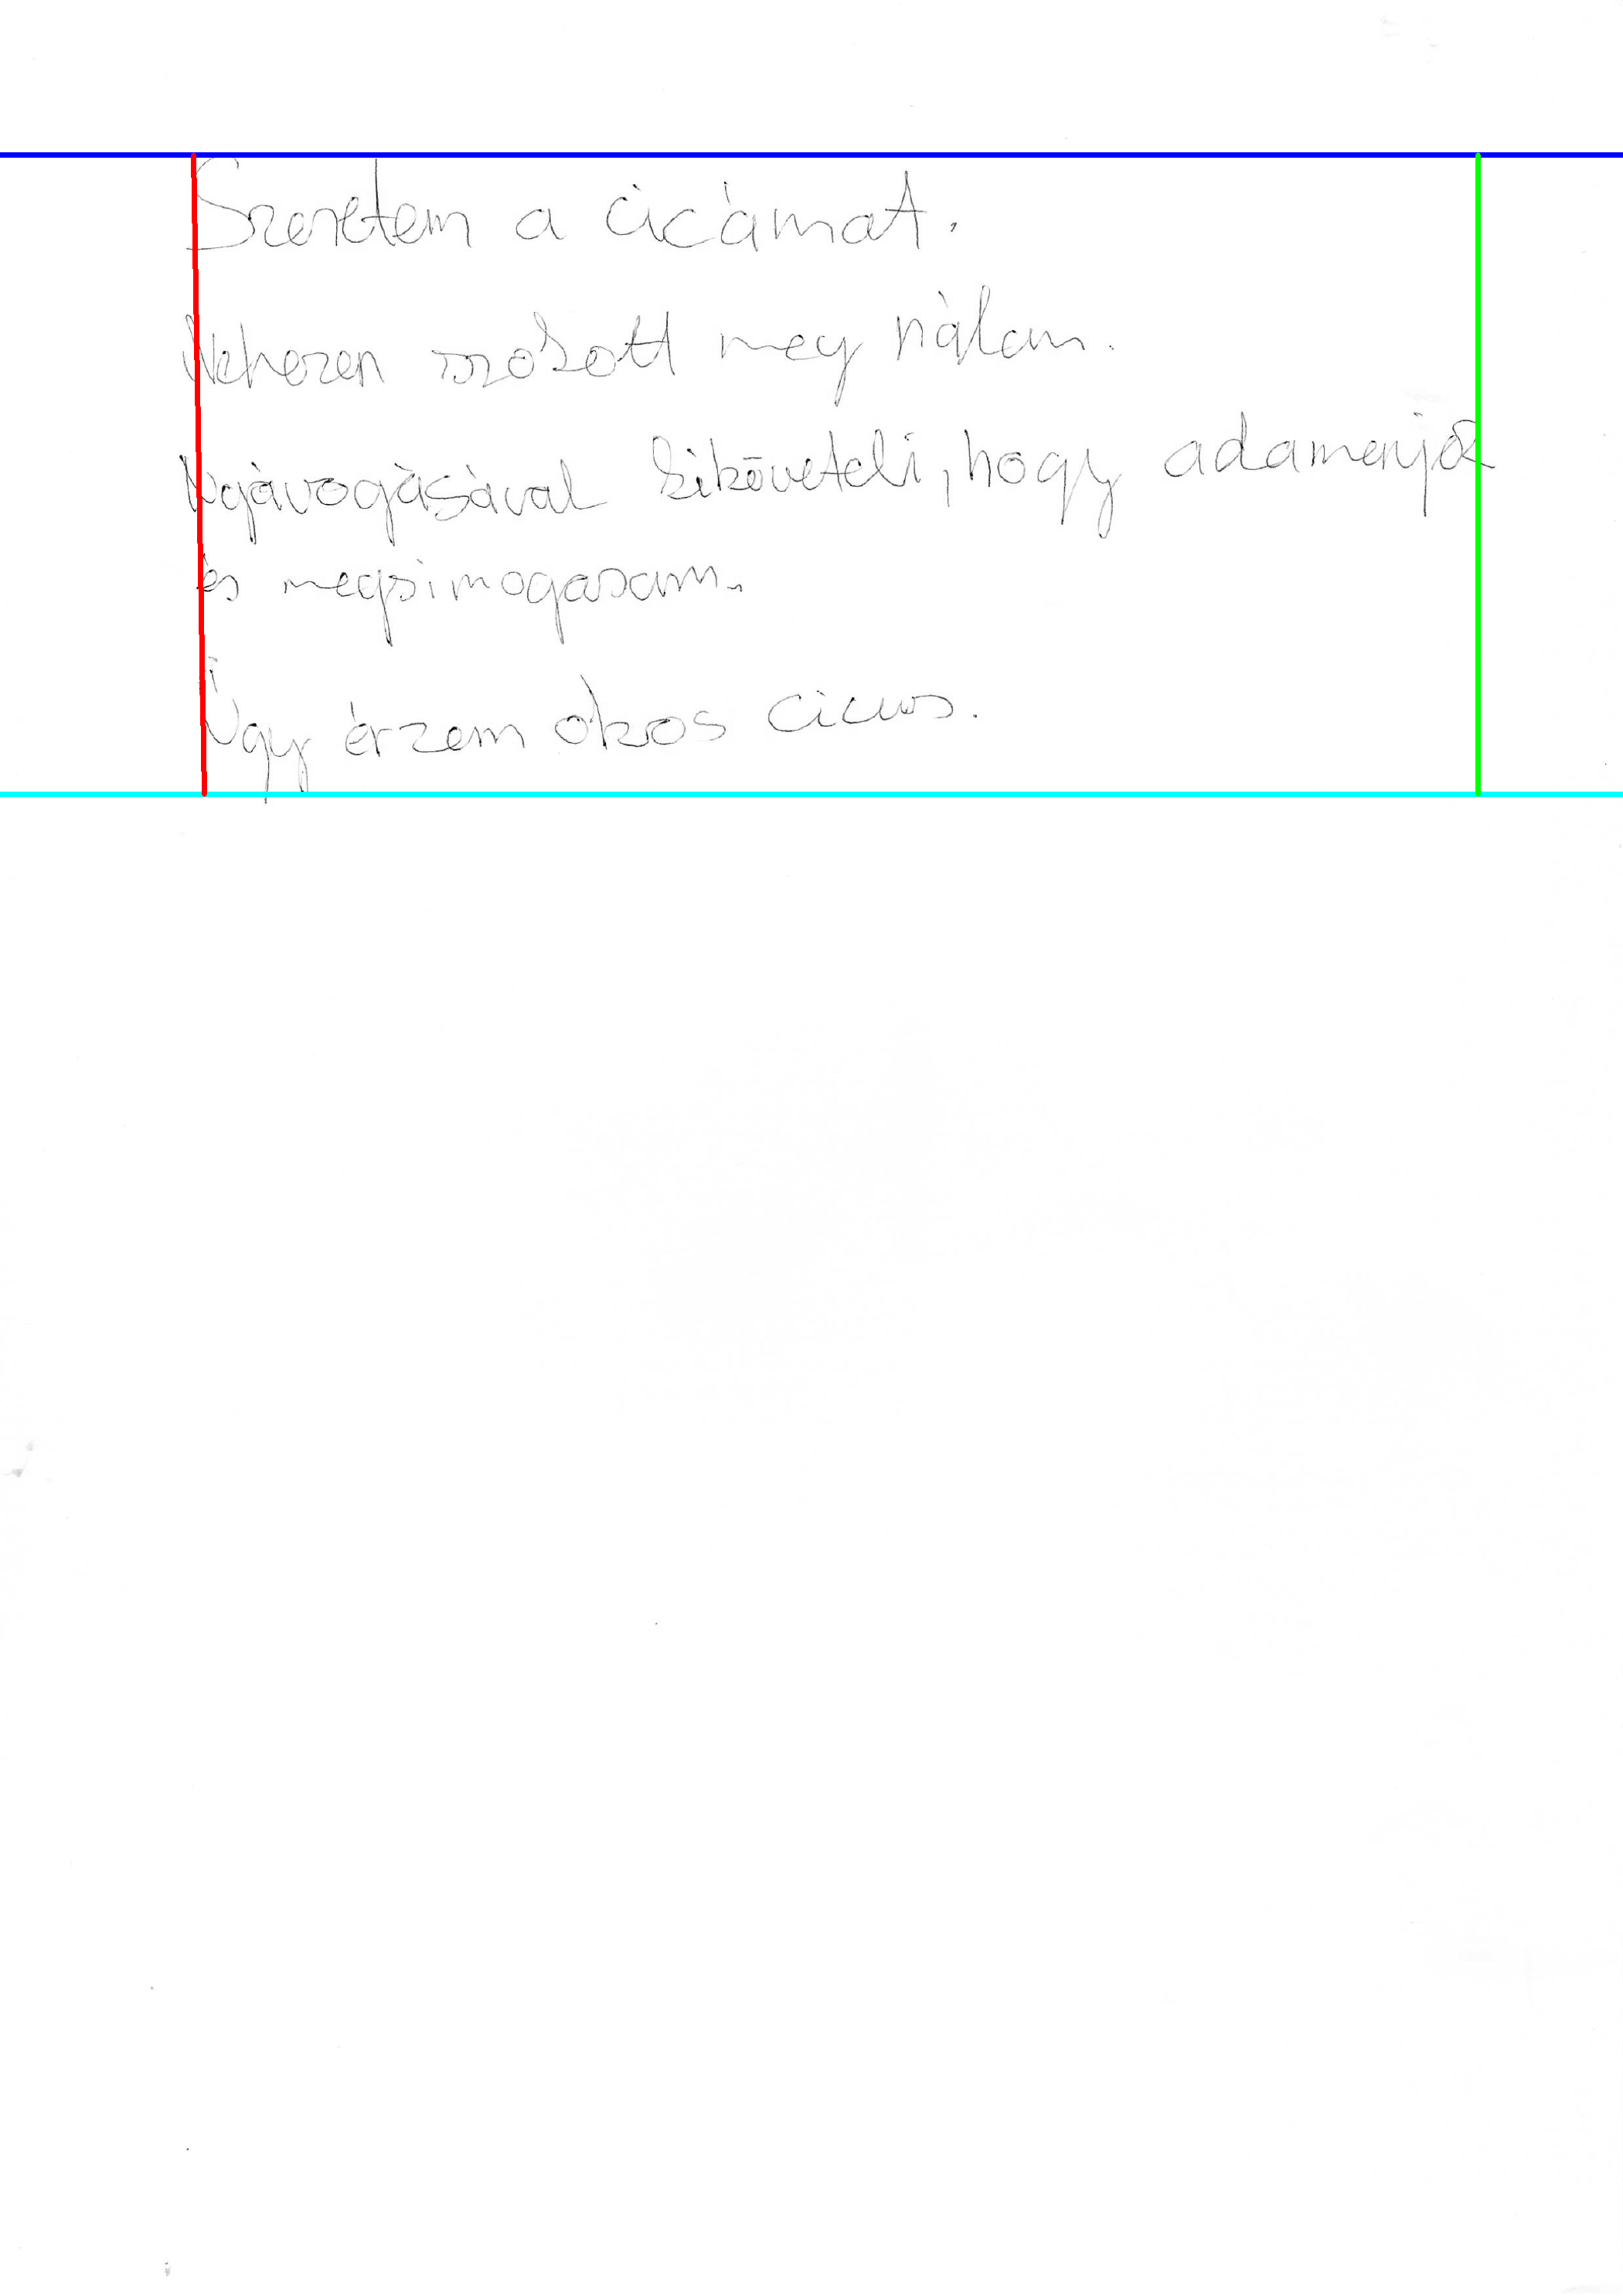 Szeretem a cicámat.
Nehezen szokott meg nálam.
Nyávogásával kiköveteli, hogy odamenjek
és megsimogasam.
Úgy érzem okos cicus.